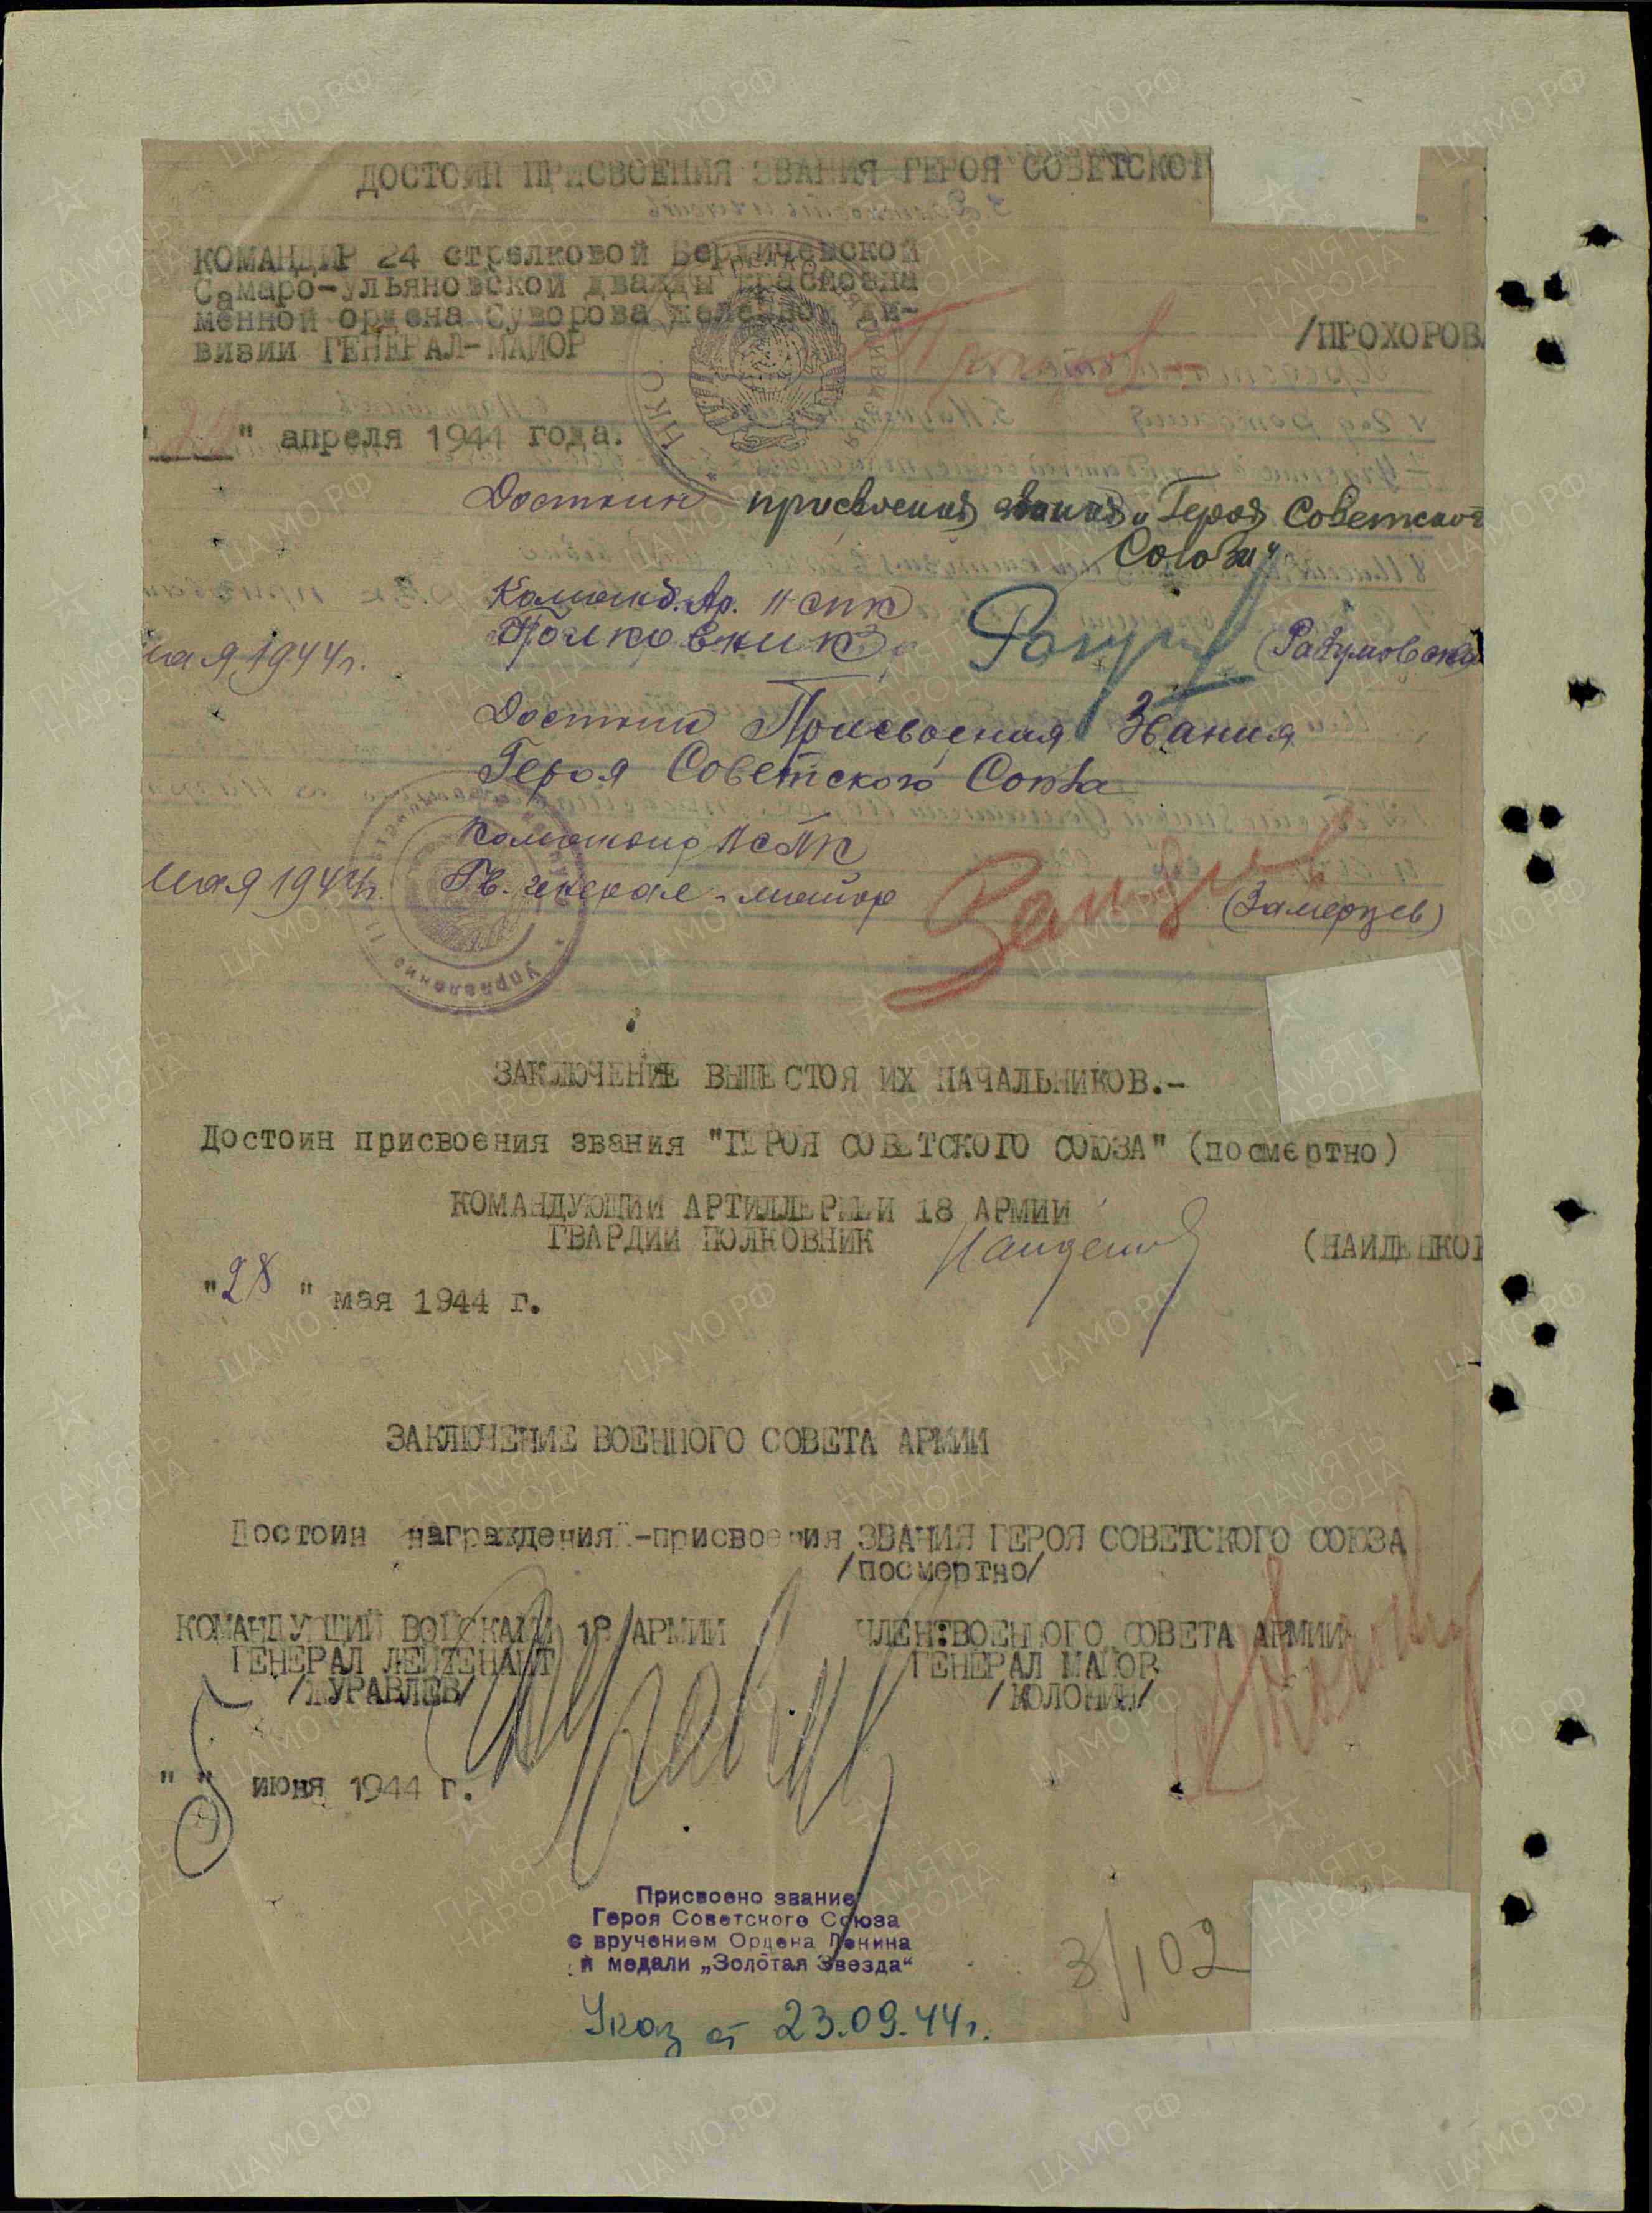 ДОСТОИН ПРИСВОЕНИЯ ЗВАНИЯ ГЕРОЯ СОВЕТСКОГ
КОМАНДИР 24 стрелковой Бердичевской
Самаро-ульяновской дважды краснозна
менной ордена Суворова железной ди-
визии ГЕНЕРАЛ-МАЙОР /ПРОХОРОВ
" " апреля 1944 года.
Достоин присвоения звания "Героя Советског
Союза"
Команд. Ар. 11 СПК
Полковник (Разумовский
мая 1944г.
Достоин Присвоения Звания
Героя Советского Союза
Командир 11 СПК
мая 1944г. Гв. генерал-майор (Замерцев)
ЗАКЛЮЧЕНИЕ ВЫШЕСТОЯ ИХ НАЧАЛЬНИКОВ.-
Достоин присвоения звания "ГЕРОЯ СОВЕТСКОГО СОЮЗА" (посмертно)
КОМАНДУЮЩИЙ АРТИЛЛЕРИЕЙ 18 АРМИИ
ГВАРДИИ ПОЛКОВНИК (НАЙДЕНКОВ
"28" мая 1944 г.
ЗАКЛЮЧЕНИЕ ВОЕННОГО СОВЕТА АРМИИ
Достоин награждения -присвоения ЗВАНИЯ ГЕРОЯ СОВЕТСКОГО СОЮЗА
/посмертно/
КОМАНДУЮЩИЙ ВОЙСКАМИ 18 АРМИИ ЧЛЕН ВОЕННОГО СОВЕТА АРМИИ
ГЕНЕРАЛ ЛЕЙТЕНАНТ ГЕНЕРАЛ МАЙОР
/ЖУРАВЛЕВ/ /КОЛОНИН/
" " июня 1944 г.
Присвоено звание
Героя Советского Союза
с вручением Ордена Ленина
и медали „Золотая Звезда“
3/102
Указ от 23.09.44г.